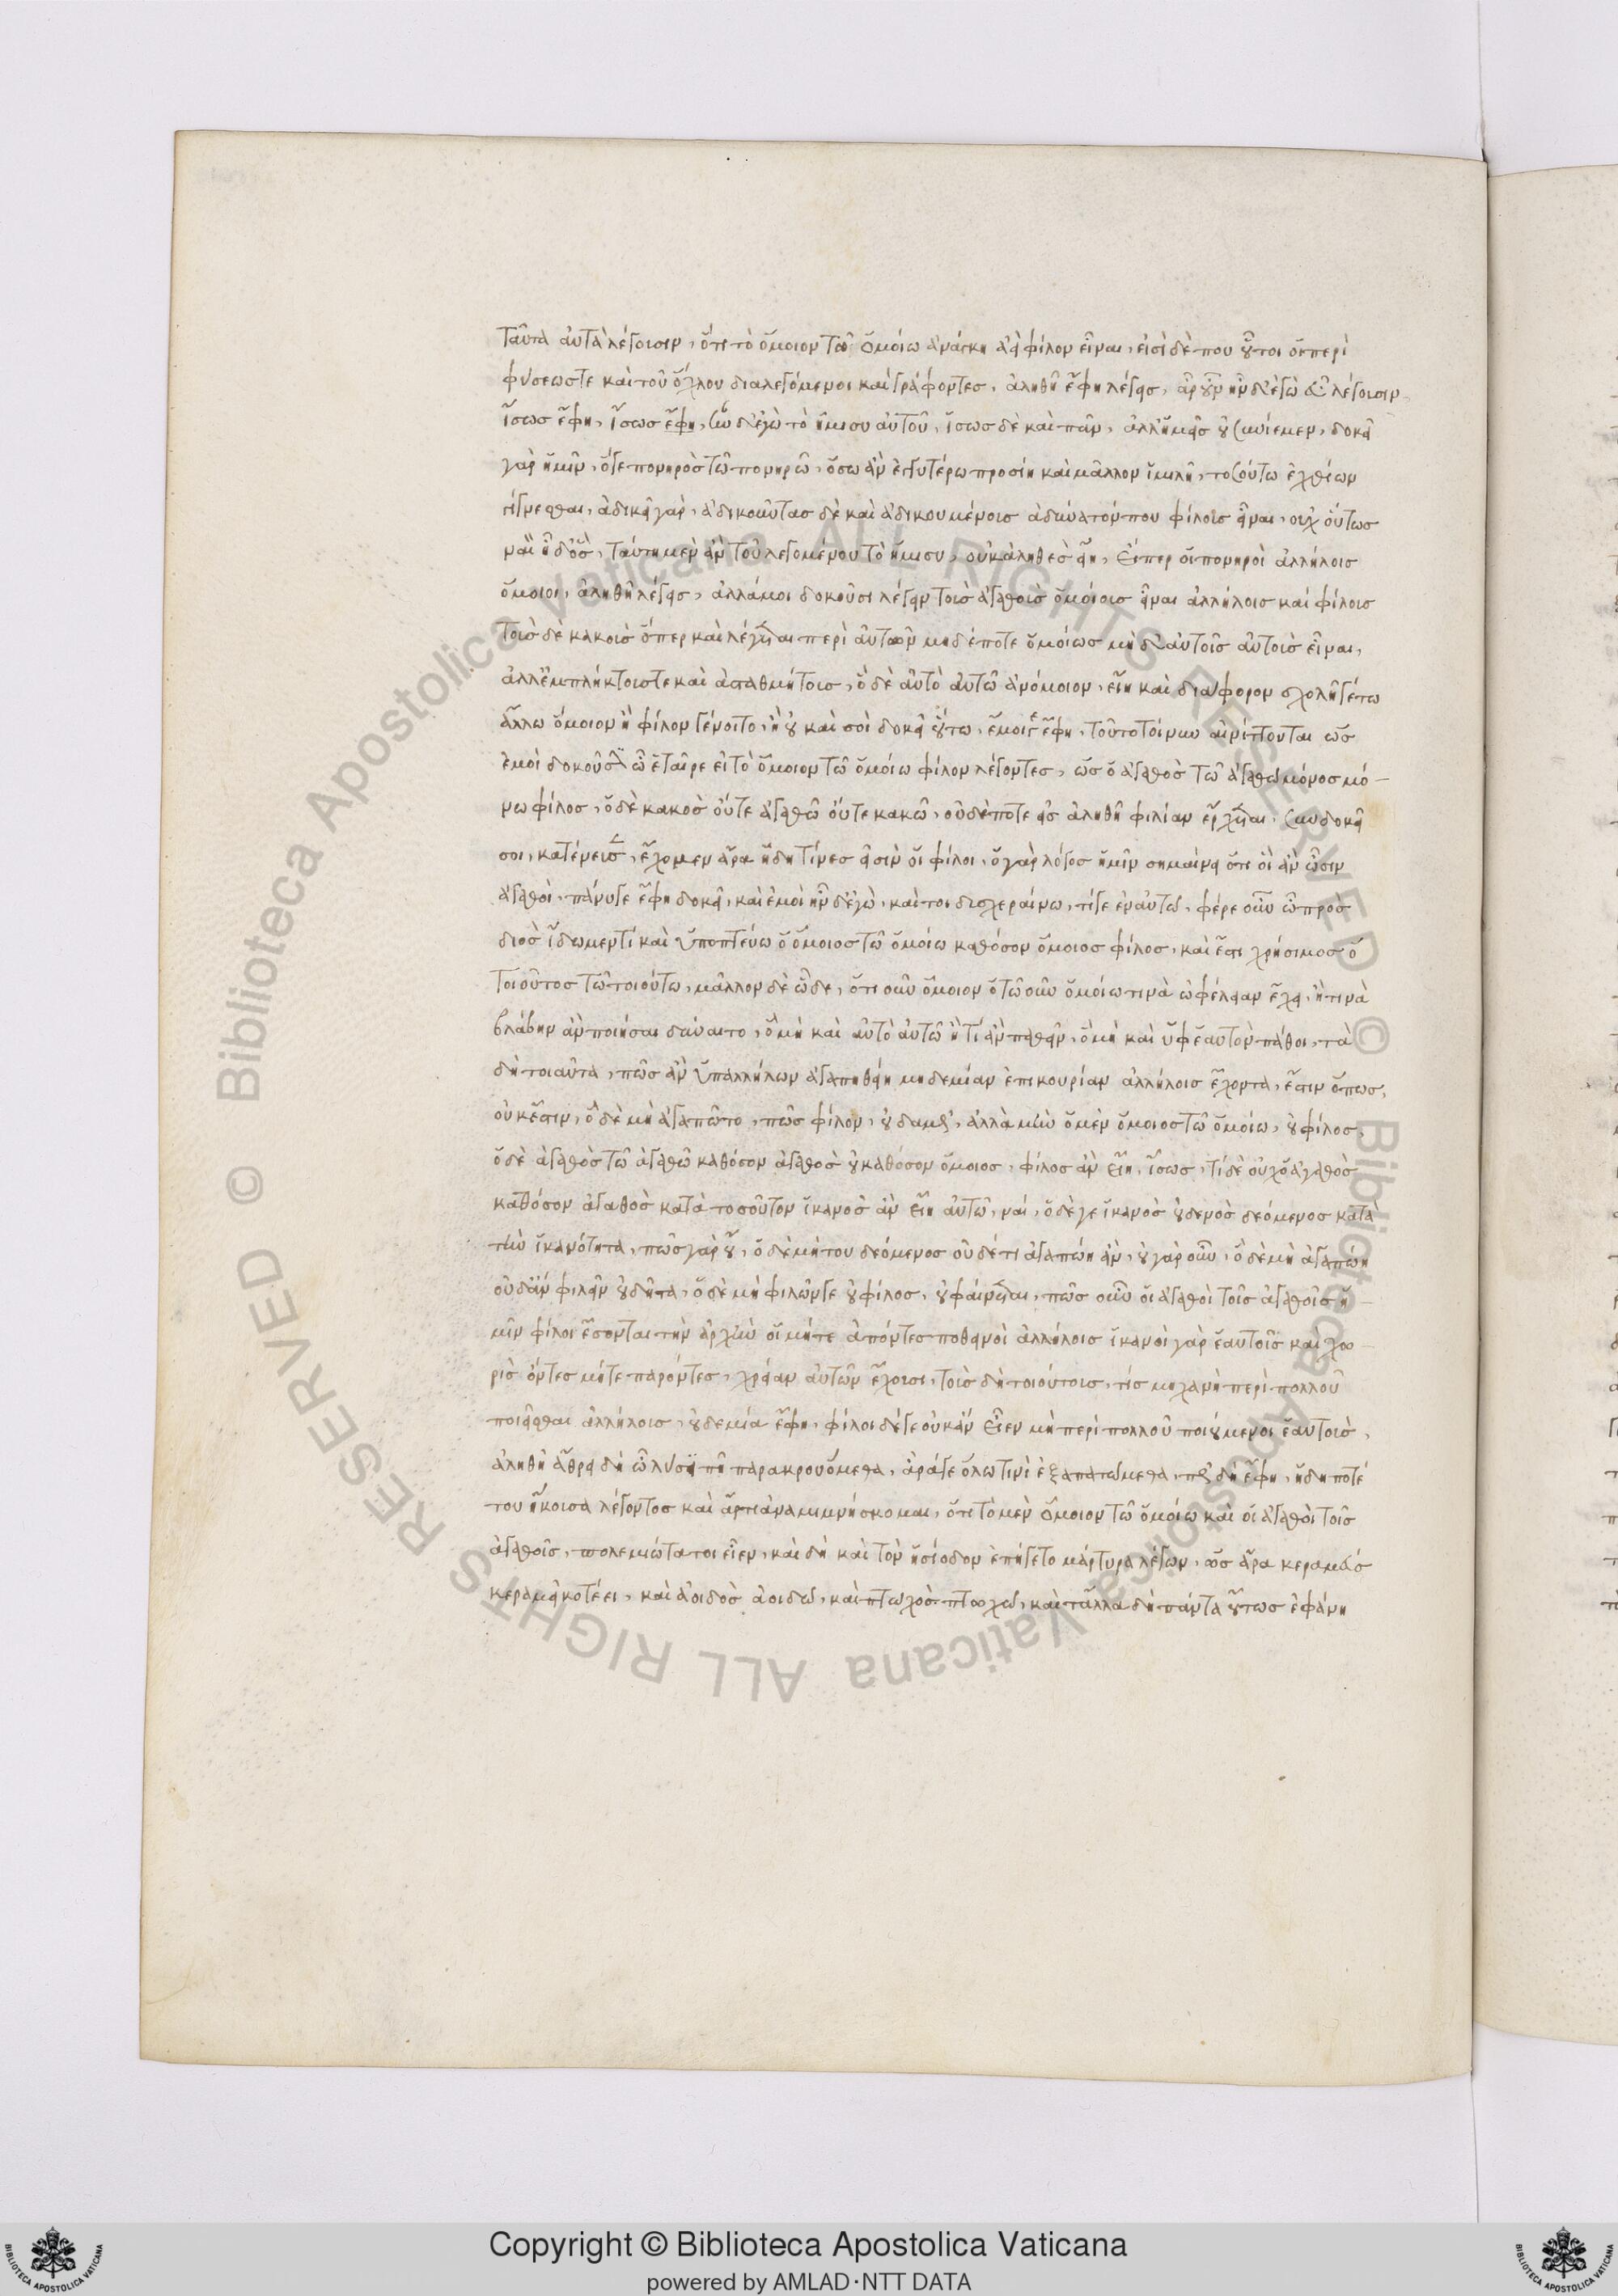 ταῦτα αὐτὰ λέγουσιν, ὅτι τὸ ὅμοιον τῶ ὁμοίω ἀνάγκη ἀεὶ φίλον εἶναι, εἰσὶ δὲ που οὗτοι οἱ περὶ
φύσεώς τε καὶ τοῦ ὅλου διαλεγόμενοι καὶ γράφοντες, ἀληθῆ ἔφη λέγεις, ἆρ οὖν ἦν δ' ἐγὼ εὖ λέγουσιν,
ἴσως ἔφη, ἴσως ἔφη, ἦν δ' ἐγὼ τὸ ἥμισυ αὐτοῦ, ἴσως δὲ καὶ πᾶν, ἀλλ' ἡμεῖς οὐ συνίεμεν, δοκεῖ
γὰρ ἡμῖν, ὅγε πονηρὸς τῶ πονηρῶ, ὅσω ἂν ἐγγυτέρω προσίη καὶ μᾶλλον ὁμιλῆ, τοσούτω ἐχθίων
γίγνεσθαι, ἀδικεῖ γάρ, ἀδικοῦντας δὲ καὶ ἀδικουμένους ἀδύνατόν που φίλους εἶναι, οὐχ οὕτως
ναὶ ἦ δ' ὅς, ταύτη μὲν ἂν τοῦ λεγομένου τὸ ἥμισυ, οὐκ ἀληθὲς εἴη, εἴπερ οἱ πονηροὶ ἀλλήλοις
ὅμοιοι, ἀληθῆ λέγεις, ἀλλά μοι δοκοῦσι λέγειν τοὺς ἀγαθοὺς ὁμοίους εἶναι ἀλλήλοις καὶ φίλους
τοὺς δὲ κακοὺς ὅπερ καὶ λέγεται περὶ αὐτῶν μηδέποτε ὁμοίως μηδ' αὐτοὺς αὐτοῖς εἶναι,
ἀλλ' ἐμπλήκτους τε καὶ ἀσταθμήτους, ὃ δὲ αὐτὸ αὑτῶ ἀνόμοιον, εἴη καὶ διάφορον σχολῆ γέ τω
ἄλλω ὅμοιον ἢ φίλον γένοιτο, ἢ οὐ καὶ σοὶ δοκεῖ οὕτω, ἔμοιγ' ἔφη, τοῦτο τοίνυν αἰνίττονται ὡς
ἐμοὶ δοκοῦσιν ὦ ἑταῖρε εἰ τὸ ὅμοιον τῶ ὁμοίω φίλον λέγοντες, ὡς ὁ ἀγαθὸς τῶ ἀγαθῶ μόνος μό-
νω φίλος, ὁ δὲ κακὸς οὔτε ἀγαθῶ οὔτε κακῶ, οὐδέποτε εἰς ἀληθῆ φιλίαν ἔρχεται, συνδοκεῖ
σοι, κατένευσεν, ἔχομεν ἄρα ἤδη τίνες εἰσὶν οἱ φίλοι, ὁ γὰρ λόγος ἡμῖν σημαίνει ὅτι οἳ ἂν ὦσιν
ἀγαθοὶ, πάνυ γε ἔφη δοκεῖ, καὶ ἐμοὶ ἦν δ' ἐγὼ, καί τοι δυσχεραίνω, τί γε ἐν αὐτῶ, φέρε οὖν ὦ πρὸς
διὸς ἴδωμεν τί καὶ ὑποπτεύω ὁ ὅμοιος τῶ ὁμοίω καθόσον ὅμοιος φίλος, καὶ ἔστι χρήσιμος ὁ
τοιοῦτος τῶ τοιούτω, μᾶλλον δὲ ὧδε, ὅτι οὖν ὅμοιον ὅτω οὖν ὁμοίω τινὰ ὠφέλειαν ἔχειν, ἤ τινα
βλάβην ἂν ποιῆσαι δύναιτο, ὃ μὴ καὶ αὐτὸ αὑτῶ ἢ τί ἂν παθεῖν, ὃ μὴ καὶ ὑφ' ἑαυτοῦ πάθοι, τὰ
δὴ τοιαῦτα, πῶς ἂν ὑπ' ἀλλήλων ἀγαπηθείη μηδεμίαν ἐπικουρίαν ἀλλήλοις ἔχοντα, ἔστιν ὅπως,
οὐκ ἔστιν, ὃ δὲ μὴ ἀγαπῶτο, πῶς φίλον, οὐδαμῶς, ἀλλὰ μὴν ὁ μὲν ὅμοιος τῶ ὁμοίω, οὐ φίλος,
ὁ δὲ ἀγαθὸς τῶ ἀγαθῶ καθόσον ἀγαθὸς οὐ καθόσον ὅμοιος, φίλος ἂν εἴη, ἴσως, τί δὲ οὐχ ὁ ἀγαθὸς
καθόσον ἀγαθὸς κατὰ τοσοῦτον ἱκανὸς ἂν εἴη αὑτῶ, ναί, ὁ δέ γε ἱκανὸς οὐδενὸς δεόμενος κατὰ
τὴν ἱκανότητα, πῶς γὰρ οὔ, ὁ δὲ μή του δεόμενος οὐδέ τι ἀγαπώη ἄν, οὐ γὰρ οὖν, ὃ δὲ μὴ ἀγαπώη
οὐδ' ἂν φιλεῖν οὐ δῆτα, ὁ δὲ μὴ φιλῶν γε οὐ φίλος, οὐ φαίνεται, πῶς οὖν οἱ ἀγαθοὶ τοῖς ἀγαθοῖς ἡ-
μῖν φίλοι ἔσονται τὴν ἀρχὴν οἳ μήτε ἀπόντες ποθεινοὶ ἀλλήλοις ἱκανοὶ γὰρ ἑαυτοῖς καὶ χω-
ρὶς ὄντες μήτε παρόντες, χρείαν αὑτῶν ἔχουσι, τοὺς δὴ τοιούτους, τίς μηχανὴ περὶ πολλοῦ
ποιεῖσθαι ἀλλήλους, οὐδεμία ἔφη, φίλοι δέ γε οὐκ ἂν εἶεν μὴ περὶ πολλοῦ ποιούμενοι ἑαυτούς,
ἀληθῆ ἄθρει δὴ ὦ λύσι πῆ παρακρουόμεθα, ἆρά γε ὅλω τινὶ ἐξαπατώμεθα, πῶς δὴ ἔφη, ἤδη ποτέ
του ἤκουσα λέγοντος καὶ ἄρτι ἀναμιμνήσκομαι, ὅτι τὸ μὲν ὅμοιον τῶ ὁμοίω καὶ οἱ ἀγαθοὶ τοῖς
ἀγαθοῖς, πολεμιώτατοι εἶεν, καὶ δὴ καὶ τὸν ἡσίοδον ἐπήγετο μάρτυρα λέγων, ὡς ἄρα κεραμεὺς
κεραμεῖ κοτέει, καὶ ἀοιδὸς ἀοιδῶ, καὶ πτωχὸς πτωχῶ, καὶ τἆλλα δὴ πάντα οὕτως ἐφάνη
Copyright © Biblioteca Apostolica Vaticana
powered by AMLAD·NTT DATA
© Biblioteca Apostolica Vaticana ALL RIGHTS RESERVED
© Biblioteca Apostolica Vaticana ALL RIGHTS RESERVED
BIBLIOTECA APOSTOLICA VATICANA
BIBLIOTECA APOSTOLICA VATICANA